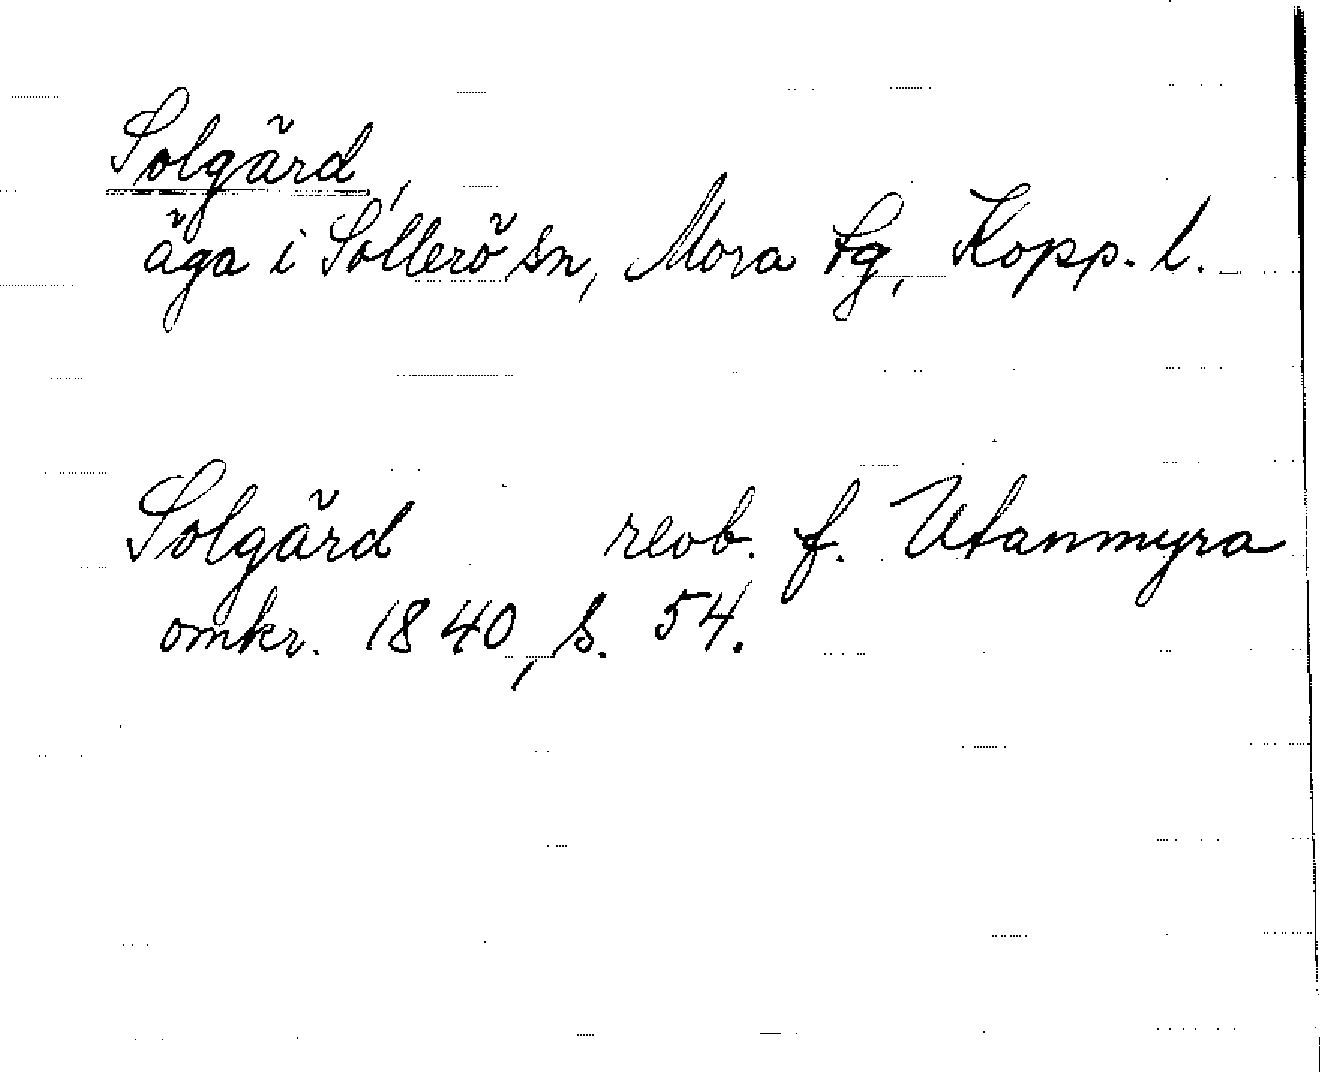 Solgård,
äga i Sollerö sn, Mora tg, Kopp. l.
Solgård revb. f. Utanmyra
omkr. 1840, s. 54.